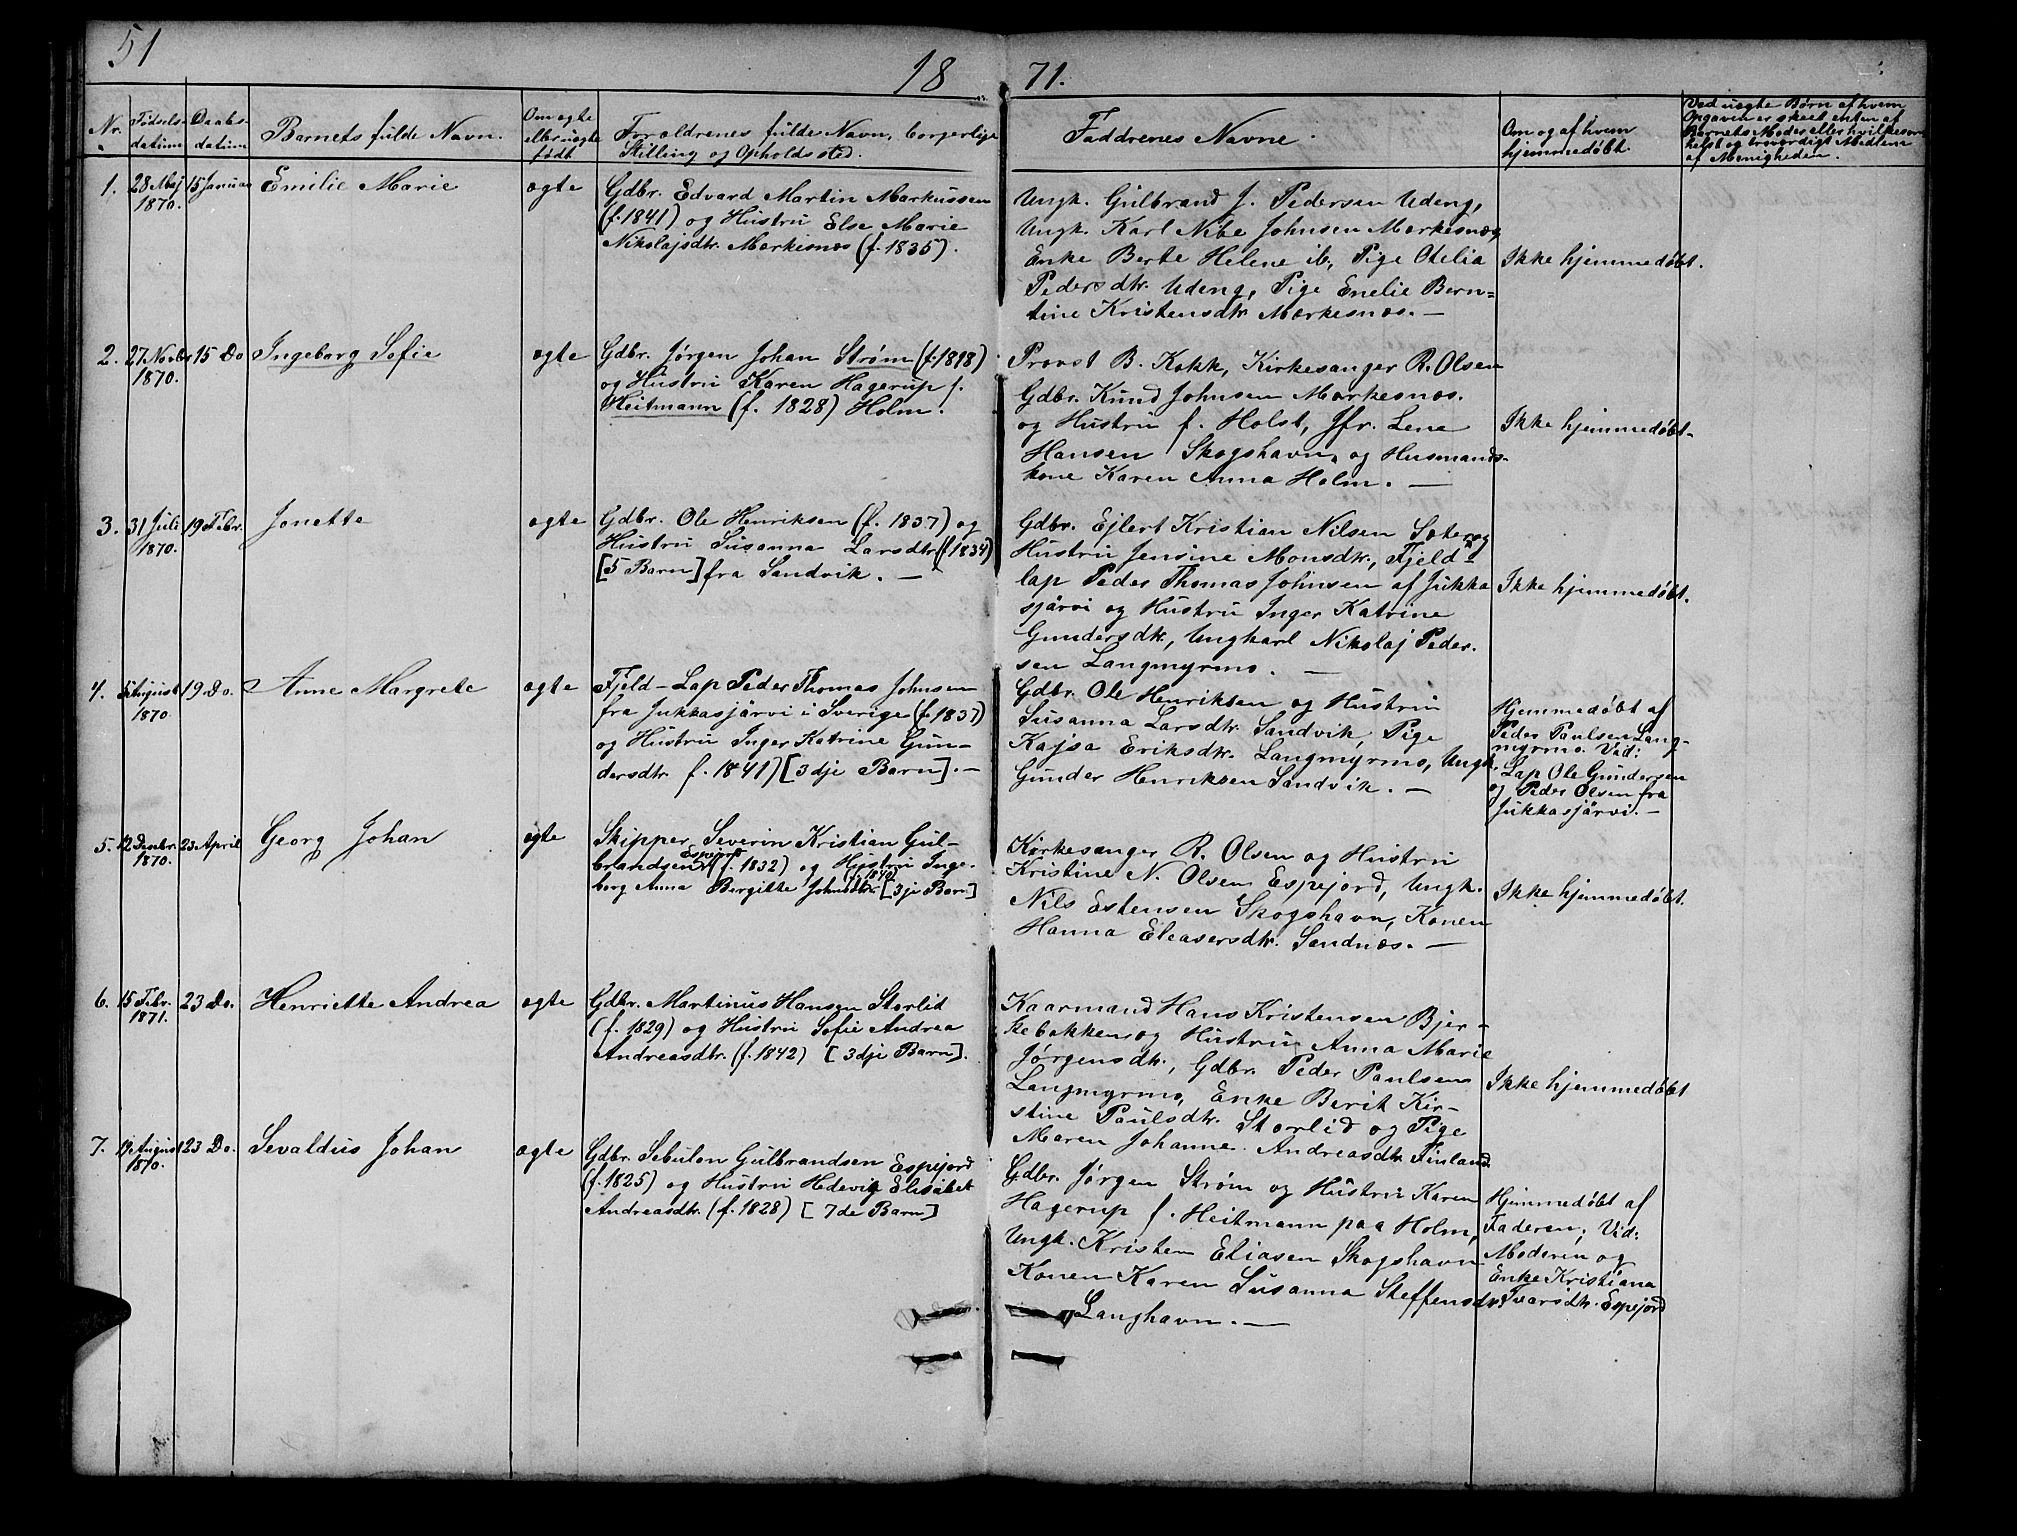 51
18 71.
Nr.
Fødsels-
datum
Daabs-
datum
Barnets fulde Navn.
Om ægte
ell. uægte
født.
Forældrenes fulde Navn, borgerlige
Stilling og Opholdssted.
Faddrenes Navne.
Om og af hvem
hjemmedøbt.
Ved uægte Børn af hvem
Opgaven er skeet, enten af
Barnets Moder eller hvilkesom
helst og troværdigt Medlem
af Menigheden.
1. 28 Maj
1870.
15 Januar
Emilie Marie
ægte
Gdbr. Edvard Martin Markussen
(f. 1841) og Hustru Else Marie
Nikolajsdtr. Mærkesnæs (f. 1835).
Ungk. Gulbrand J. Pedersen Udeng,
Ungk. Karl Nibe Johnsen Mærkesnæs,
Enke Berte Helene ib., Pige Otelia
Pedersdtr. Udeng, Pige Enelie Bern=
tine Kristensdtr. Mærkesnæs. —
Ikke hjemmedøbt.
2. 27 Novbr
1870.
15 Do
Ingeborg Sofie
ægte
Gdbr. Jørgen Johan Strøm (f. 1818)
og Hustru Karen Hagerup f.
Heitmann (f. 1828) Holm.
Provst B. Kokk, Kirkesanger R. Olsen
Gdbr. Knud Johnsen Mærkesnæs.
og Hustru f. Holst, Jfr. Lene
Hansen Skogshavn, og Husmands-
kone Karen Anna Holm. —
Ikke hjemmedøbt.
3. 31 Juli
1870.
19 Febr.
Jonette
ægte
Gdbr. Ole Henriksen (f. 1837) og
Hustru Susanna Larsdtr. (f. 1834)
[5 Barn] fra Sandvik. —
Gdbr. Ejlert Kristian Nilsen Sæter og
Hustru Jensine Monsdtr., Fjeld-
lap Peder Thomas Johnsen af Jukka
sjärvi og Hustru Inger Katrine
Gundersdtr, Ungkarl Nikolaj Peder-
sen Langmyrmo. —
Ikke hjemmedøbt.
4. August
1870.
19 Do.
Anne Margrete
ægte
Fjeld-Lap Peder Thomas Johnsen
fra Jukkasjärvi i Sverige (f. 1837)
og Hustru Inger Katrine Gun-
dersdtr. f. 1841) [3dje Barn]. —
Gdbr. Ole Henriksen og Hustru
Susanna Larsdtr. Sandvik, Pige
Kajsa Eriksdtr. Langmyrmo, Ungk.
Gunder Henriksen Sandvik. —
Hjemmedøbt af
Peder Paulsen Lang-
myrmo. Vid:
Lap Ole Gundersen
og Peder Olsen fra
Jukkasjärvi. —
5. 12 Decbr.
1870.
23 April
Georg Johan
ægte
Skipper Severin Kristian Gul-
brandsen Espejord (f. 1832) og Hustru Inge-
borg Anna Birgitte Johnsdtr. (f. 1840) [3je Barn]
Kirkesanger R. Olsen og Hustru
Kristine N. Olsen Espejord, Ungk.
Nils Estensen Skogshavn, Konen
Hanna Eleasersdtr. Sandnæs. —
Ikke hjemmedøbt.
6. 15 Febr.
1871.
23 Do.
Henriette Andrea
ægte
Gdbr. Martinus Hansen Storlid
(f. 1829) og Hustru Sofie Andrea
Andreasdtr. (f. 1842) [3dje Barn].
Kaarmand Hans Kristensen Bjer-
kebakken og Hustru Anna Marie
Jørgensdtr., Gdbr. Peder Paulsen
Langmyrmo, Enke Berit Kir-
stine Paulsdtr. Storlid og Pige
Maren Johanne Andreasdtr. Finland
Ikke hjemmedøbt
7. 19 August
1870.
23 Do.
Sevaldus Johan
ægte
Gdbr. Sebulon Gulbrandsen Espejord
(f. 1825) og Hustru Hedevig Elisabet
Andreasdtr. (f. 1828) [7de Barn]
Gdbr. Jørgen Strøm og Hustru Karen
Hagerup f. Heitmann paa Holm,
Ungk. Kristen Eliasen Skogshavn
Konen Karen Susanna Steffensdtr.
Langhavn. —
Hjemmedøbt af
Faderen; Vid:
Moderen og
Enke Kristiana
Ivarsdtr. Espejord